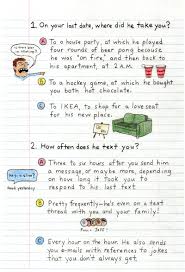 1. On your last date, where did he take you?
A To a house party, at which he played
four rounds of beer pong because
he was "on fire," and then back to
his apartment, at 2 A.M.
B To a hockey game, at which he bought
you both hot chocolate.
C To IKEA, to shop for a love seat
for his new place.
2. How often does he text you?
A Three to six hours after you send him
a message, or maybe more, depending
on how long it took you to
respond to his last text.
Read yesterday
B Pretty frequently—he's even on a text
thread with you and your family!
C Every hour on the hour. He also sends
you e-mails with references to jokes
that you don't always get.